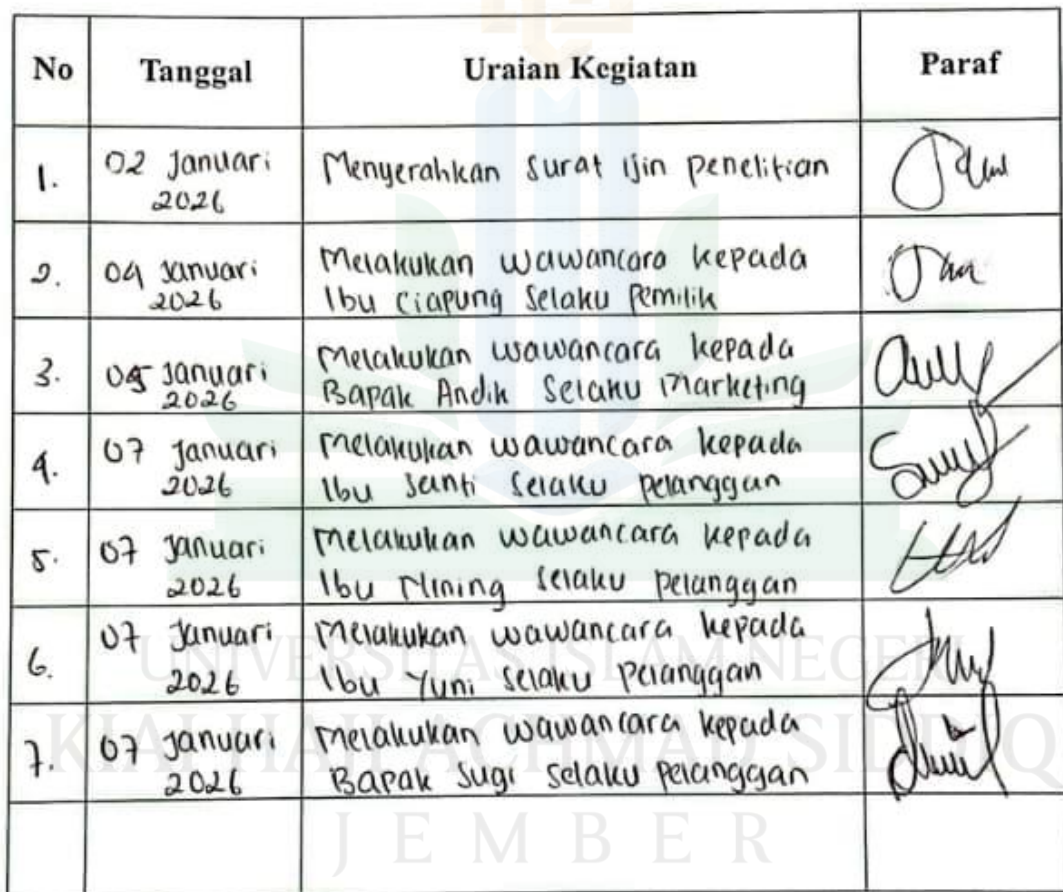 No Tanggal Uraian Kegiatan Paraf
1. 02 Januari Menyerahkan Surat Ijin Penelitian
2026
2. 04 Januari Melakukan wawancara kepada
2026 Ibu Ciapung Selaku Pemilik
3. 05 Januari Melakukan wawancara kepada
2026 Bapak Andik Selaku Marketing
4. 07 Januari Melakukan wawancara kepada
2026 Ibu Santi Selaku Pelanggan
5. 07 Januari Melakukan wawancara kepada
2026 Ibu Mining Selaku Pelanggan
6. 07 Januari Melakukan wawancara kepada
2026 Ibu Yuni Selaku Pelanggan
7. 07 Januari Melakukan wawancara kepada
2026 Bapak Sugi Selaku Pelanggan
UNIVERSITAS ISLAM NEGERI
KIAI HAJI ACHMAD SIDDIQ
JEMBER